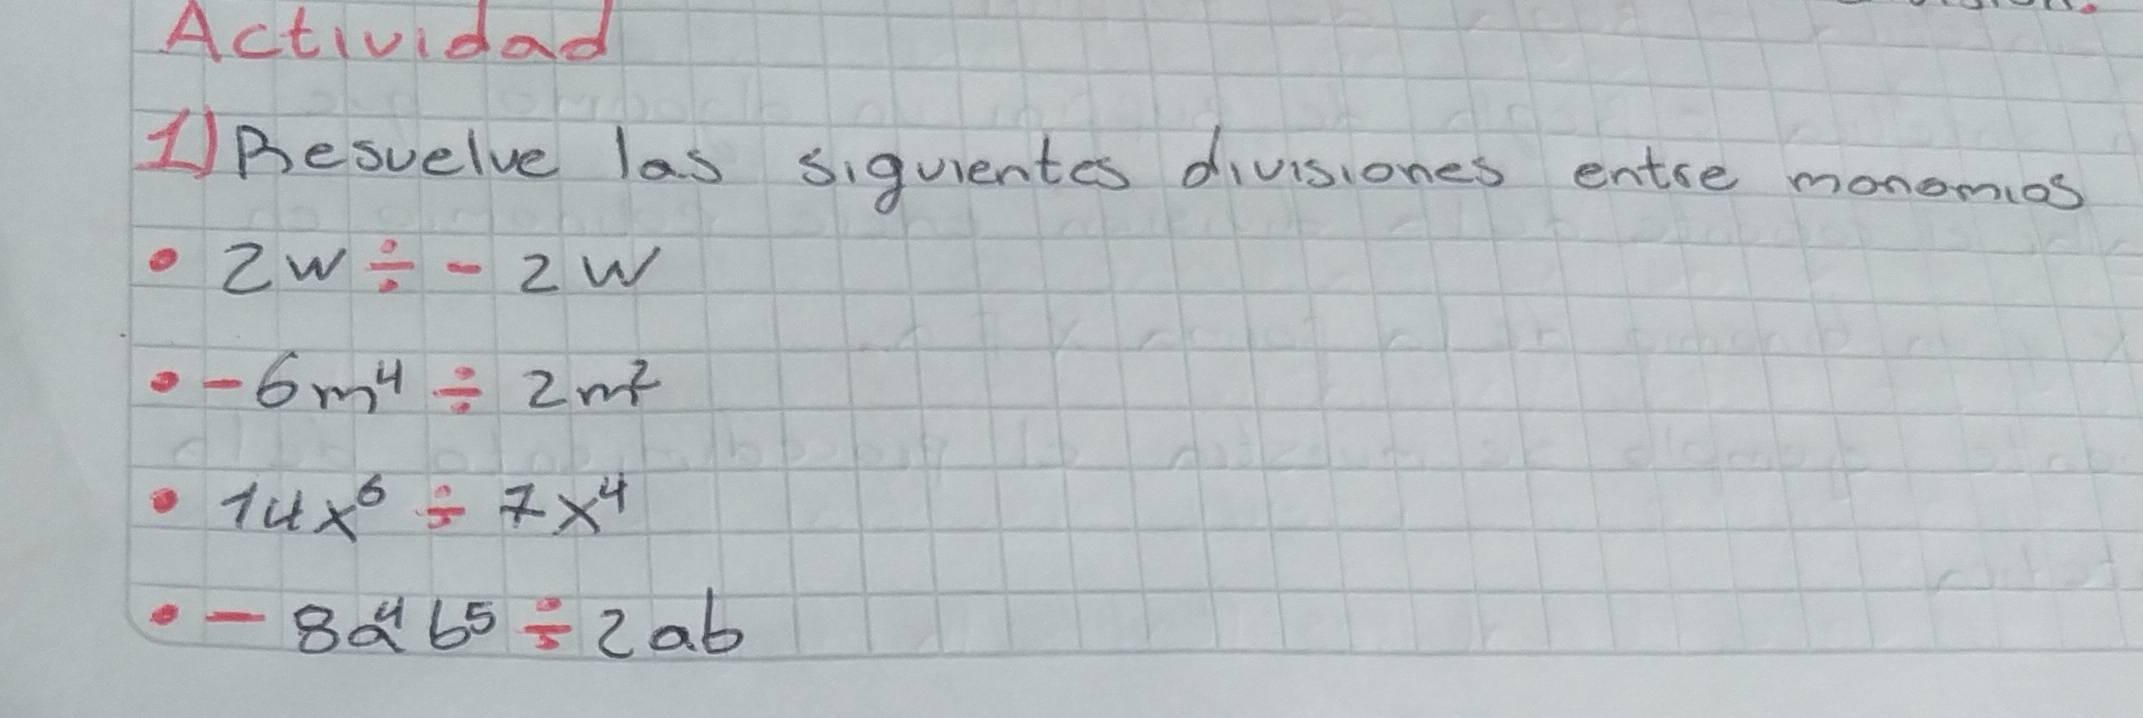 Actividad
1) Resuelve las siguientes divisiones entre monomios
• 2w ÷ - 2w
• - 6m⁴ ÷ 2m²
• 14x⁶ ÷ 7x⁴
• - 8a⁴b⁵ ÷ 2ab